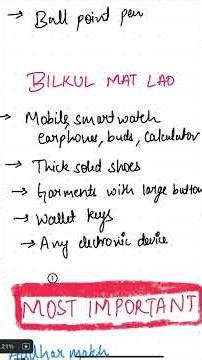 → Ball point pen
BILKUL MAT LAO
→ Mobile, smart watch
earphones, buds, calculator
→ Thick soled shoes
→ Garments with large button
→ Wallet keys
→ Any electronic device
MOST IMPORTANT
Aadhar